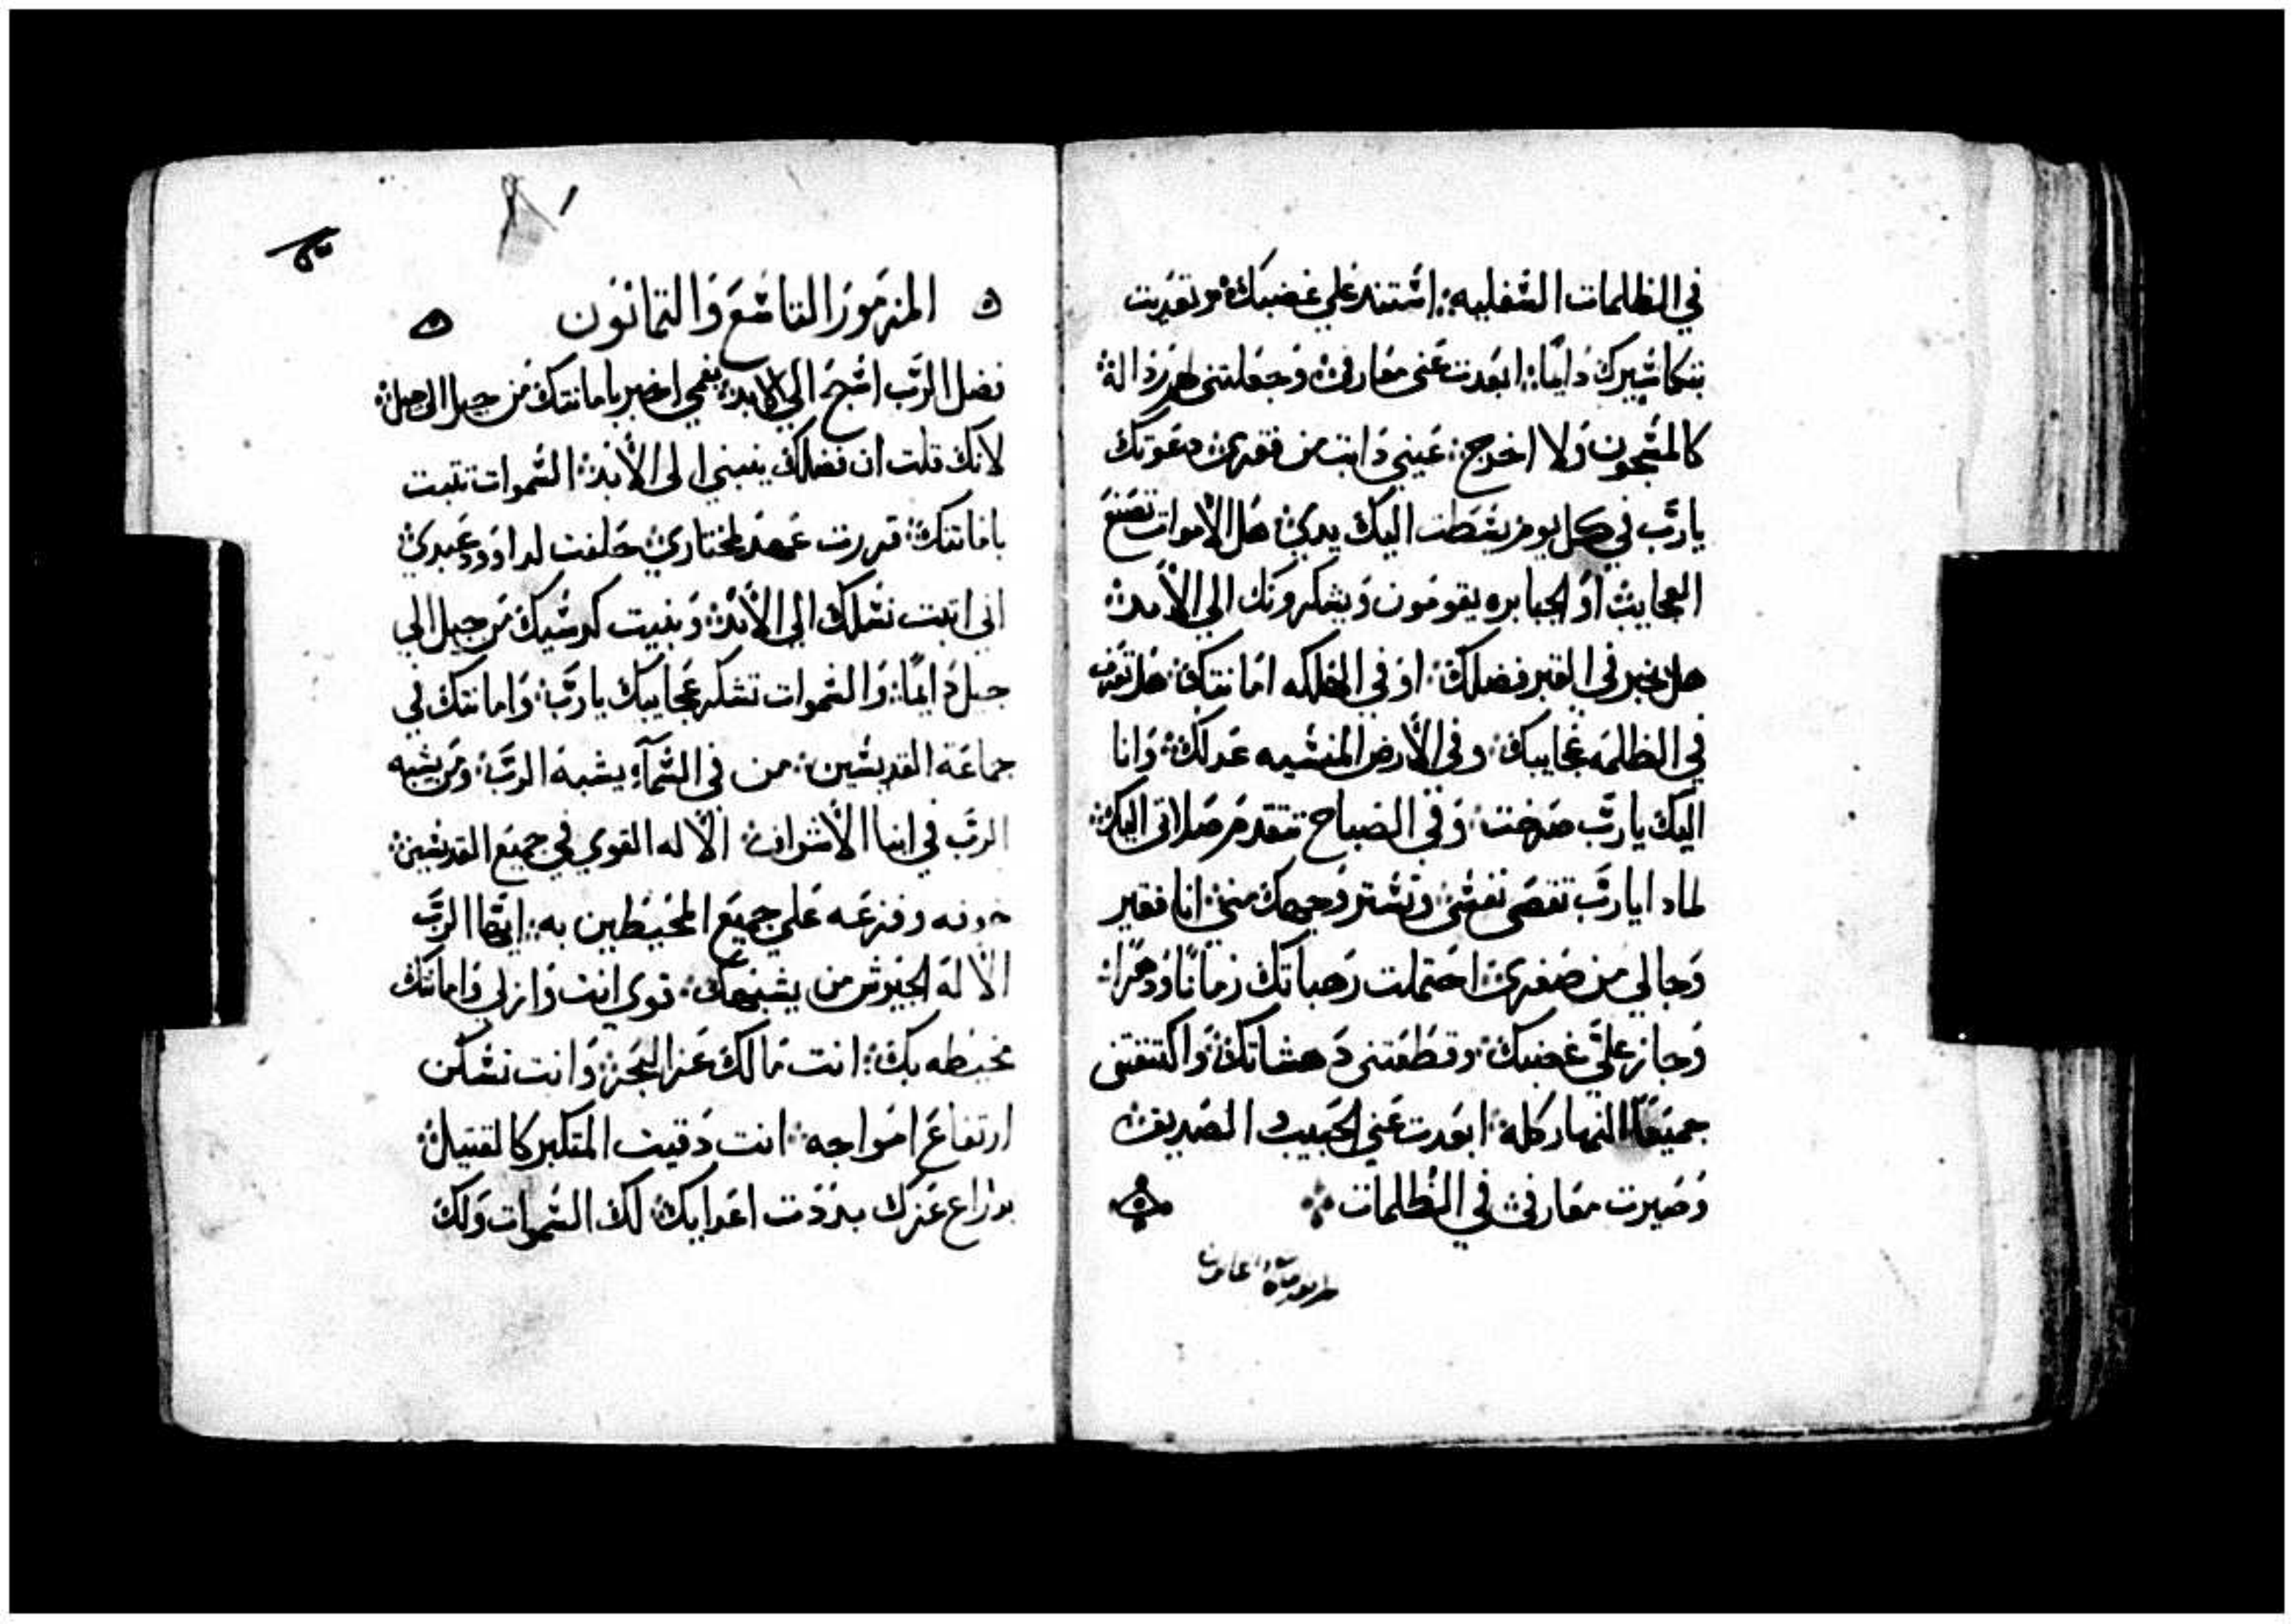 في الظلمات السفليه: استند علي غضبك: وتعديت
بتكاسيرك دايمًا: ابعدت عني معارفي: وجعلتني لهم رذاله:
كالمسجون ولا اخرج: عيني ذابت من فقري: دعوتك
يا ربّ في كل يوم بسطت اليك يدي: هل الاموات تصنع
العجايب: او الجبابره يقومون ويشكرونك الي الأبد:
هل يخبر في القبر فضلك: او في الهلكه امانتك: هل تعرف
في الظلمه عجايبك: وفي الأرض المنسيه عدلك: وانا
اليك يا ربّ صرخت: وفي الصباح تتقدم صلاتي اليك:
لماد ا يا ربّ تقصي نفسي: وتستر وجهك مني: انا فقير
وحالي من صغري: احتملت رهباتك زمانًا ودهرًا:
وجاز عليَّ غضبك: وقطعتني دهشاتك: واكتنفتني
جميعًا النهار كله: ابعدت عني الحبيب والصديق:
وصيرت معارفي في الظلمات:
المزمور التاسع والتمانون
فضل الربّ اسبح الي الابد: بفمي اخبر بامانتك من جيل الي جيل:
لانك قلت ان فضلك ينبني الي الأبد: السموات تتبت
بامانتك: قررت عهد لمختاري: حلفت لداوود عبدي:
اني اتبت نسلك الي الأبد: وبنيت كرسيك من جيل الي
جيل دايمًا: والسموات تشكر عجايبك يا ربّ: وامانتك في
جماعة القديسين: من في السمآء يشبه الربّ: ومن يشبه
الربّ في ابنا الأشراف: الأله القوي في جميع القديسين:
خوفه وفزعه علي جميع المحيطين به: ايها الربّ
الأله الجيوش من يشبهك: قوي انت وازلي وامانتك
محيطه بك: انت مالك عز البحر: وانت تسكن
ارتفاع امواجه: انت دقيت المتكبر كالقتيل:
بذراع عزك بددت اعدايك: لك السموات ولك